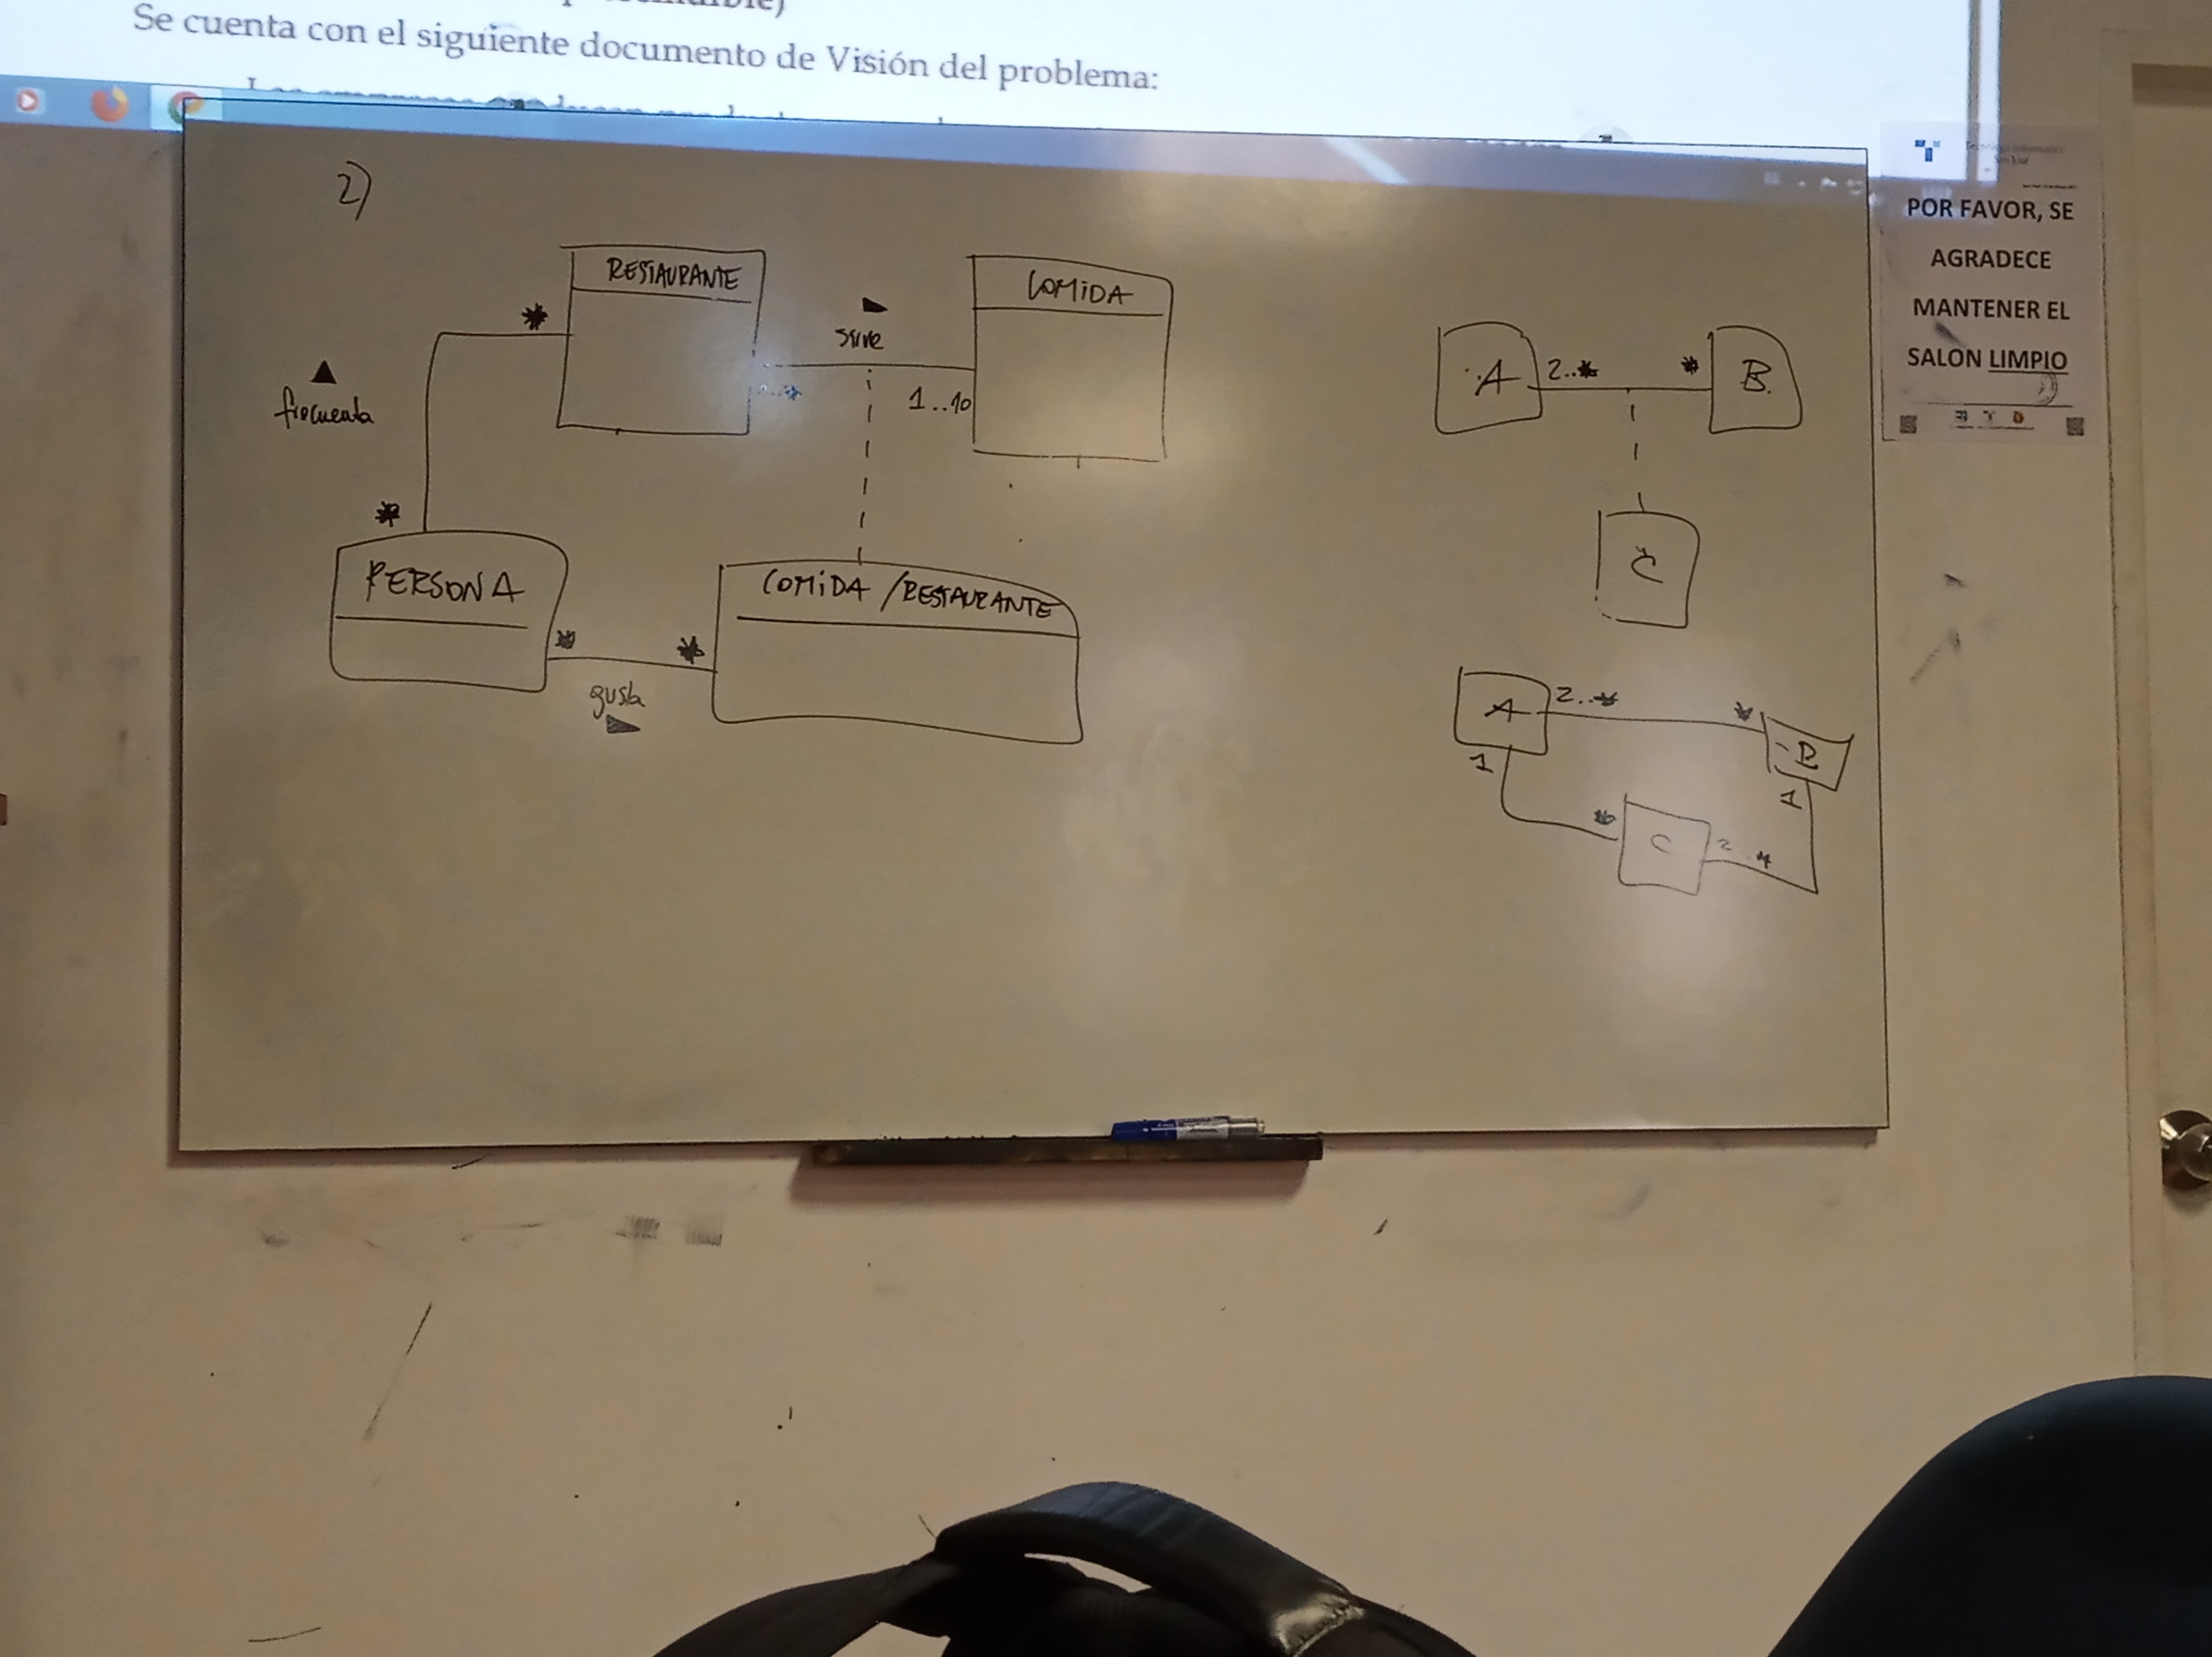 Se cuenta con el siguiente documento de Visión del problema:
2)
RESTAURANTE
*
sirve
1..10
COMIDA
frecuenta
*
PERSONA
*
gusta
*
COMIDA /RESTAURANTE
A
2..*
*
B
C
A
2..*
*
B
1
1
*
C
2..*
POR FAVOR, SE
AGRADECE
MANTENER EL
SALON LIMPIO